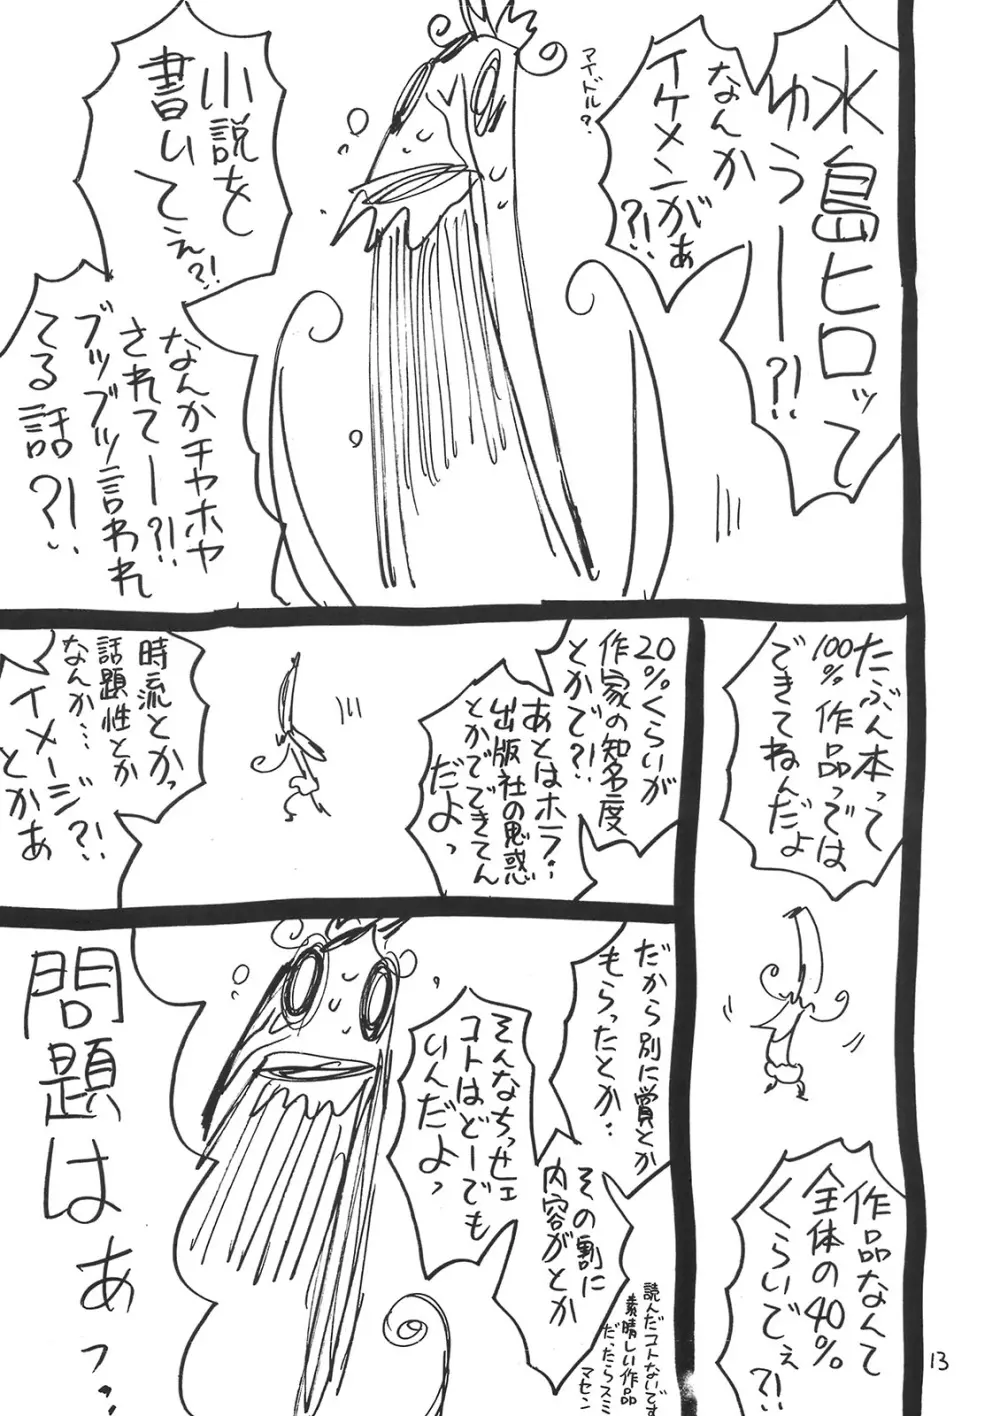 水島ヒロッて
ゆうーー?!
なんか
イケメンがぁ
?!
アイドル?
小説を
書いてぇ?!
なんかチヤホヤ
されてー?!
ブッブッ言われ
てる話?!
たぶん本って
100%作品っでは
できてねんだよ
作品なんて
全体の40%
くらいでぇ
?!
20%くらいが
作家の知名度
とかで?!
あとはホラ‥
出版社の思惑
とかでできてん
だよっ
時流とかっ
話題性とか
なんか‥‥
イメージ?!
とかぁ
だから別に賞とか
もらったとか‥
その割に
内容がとか
読んだコトないです
素晴しい作品
だったらスミ
マセン
そんなちっせェ
コトはどーでも
いんだよっ
問題はぁっ‥
13